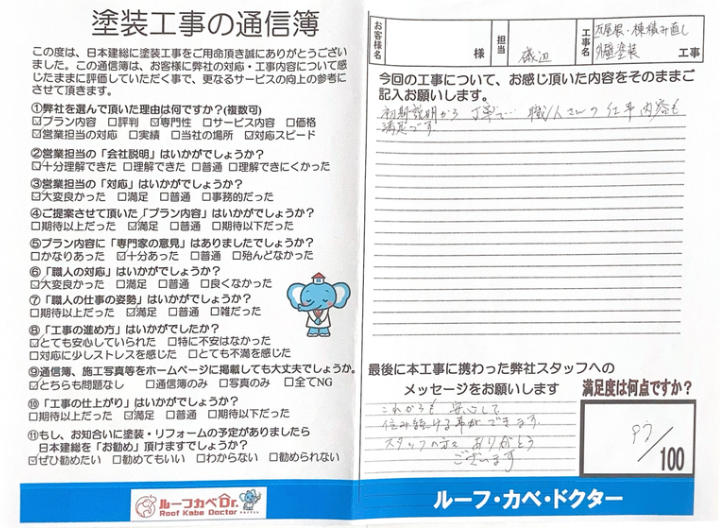 塗装工事の通信簿
この度は、日本建総に塗装工事をご用命頂き誠にありがとうござい
ました。この通信簿は、お客様に弊社の対応・工事内容について感
じたままに評価していただく事で、更なるサービスの向上の参考に
させて頂きます。
①弊社を選んで頂いた理由は何ですか?(複数可)
☑プラン内容 □評判 ☑専門性 □サービス内容 □価格
☑営業担当の対応 □実績 □当社の場所 ☑対応スピード
②営業担当の「会社説明」はいかがでしょうか?
☑十分理解できた □理解できた □普通 □理解できにくかった
③営業担当の「対応」はいかがでしょうか?
☑大変良かった □満足 □普通 □事務的だった
④ご提案させて頂いた「プラン内容」はいかがでしょうか?
□期待以上だった ☑満足 □普通 □期待以下だった
⑤プラン内容に「専門家の意見」はありましたでしょうか?
□かなりあった ☑十分あった □普通 □殆んどなかった
⑥「職人の対応」はいかがでしょうか?
☑大変良かった □満足 □普通 □良くなかった
⑦「職人の仕事の姿勢」はいかがでしょうか?
□期待以上だった ☑満足 □普通 □雑だった
⑧「工事の進め方」はいかがでしたか?
☑とても安心していられた □特に不安はなかった
□対応に少しストレスを感じた □とても不満を感じた
⑨通信簿、施工写真等をホームページに掲載しても大丈夫でしょうか。
☑どちらも問題なし □通信簿のみ □写真のみ □全てNG
⑩「工事の仕上がり」はいかがでしょうか?
□期待以上だった ☑満足 □普通 □期待以下だった
⑪もし、お知合いに塗装・リフォームの予定がありましたら
日本建総を「お勧め」頂けますでしょうか?
☑ぜひ勧めたい □勧めてもいい □わからない □勧められない
ルーフカベDr.
Roof Kabe Doctor
お客様名 様 担当 磯辺 工事名 瓦屋根・棟積み直し
外壁塗装 工事
今回の工事について、お感じ頂いた内容をそのままご
記入お願いします。
初期説明から 丁寧で… 職人さんの仕事内容も
満足です
最後に本工事に携わった弊社スタッフへの
メッセージをお願いします
これからも 安心して
住み続ける事ができます
スタッフの方々 ありがとう
ございます
満足度は何点ですか?
/100
ルーフ・カベ・ドクター